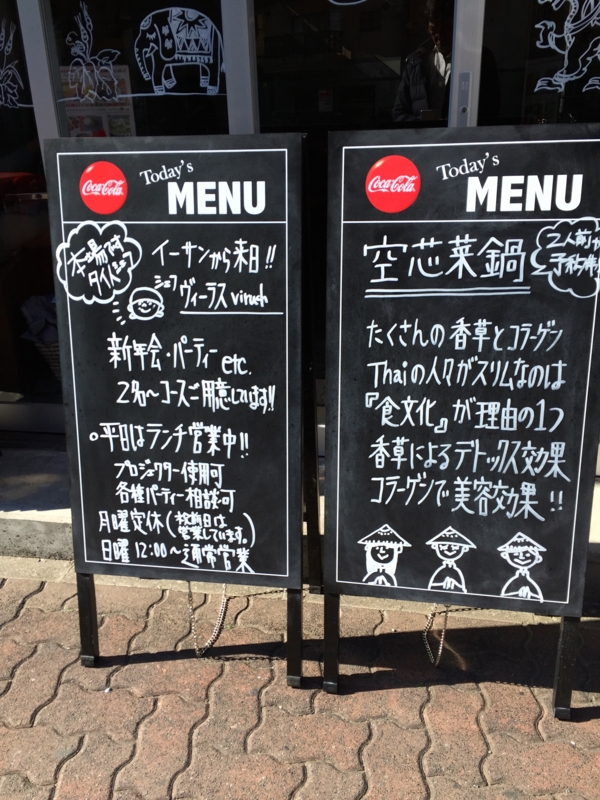 Coca-Cola
Today's
MENU
本場
タイ
イーサンから来日!!
シェフ
ヴィーラス viruch
新年会・パーティー etc.
2名〜コースご用意しています!!
○平日はランチ営業中!!
プロジェクター使用可
各種パーティー相談可
月曜定休(祝祭日は
営業しています。)
日曜 12:00〜通常営業
Coca-Cola
Today's
MENU
空芯菜鍋
2人前
予約制
たくさんの香草とコラーゲン
Thaiの人々がスリムなのは
『食文化』が理由の1つ
香草によるデトックス効果
コラーゲンで美容効果!!